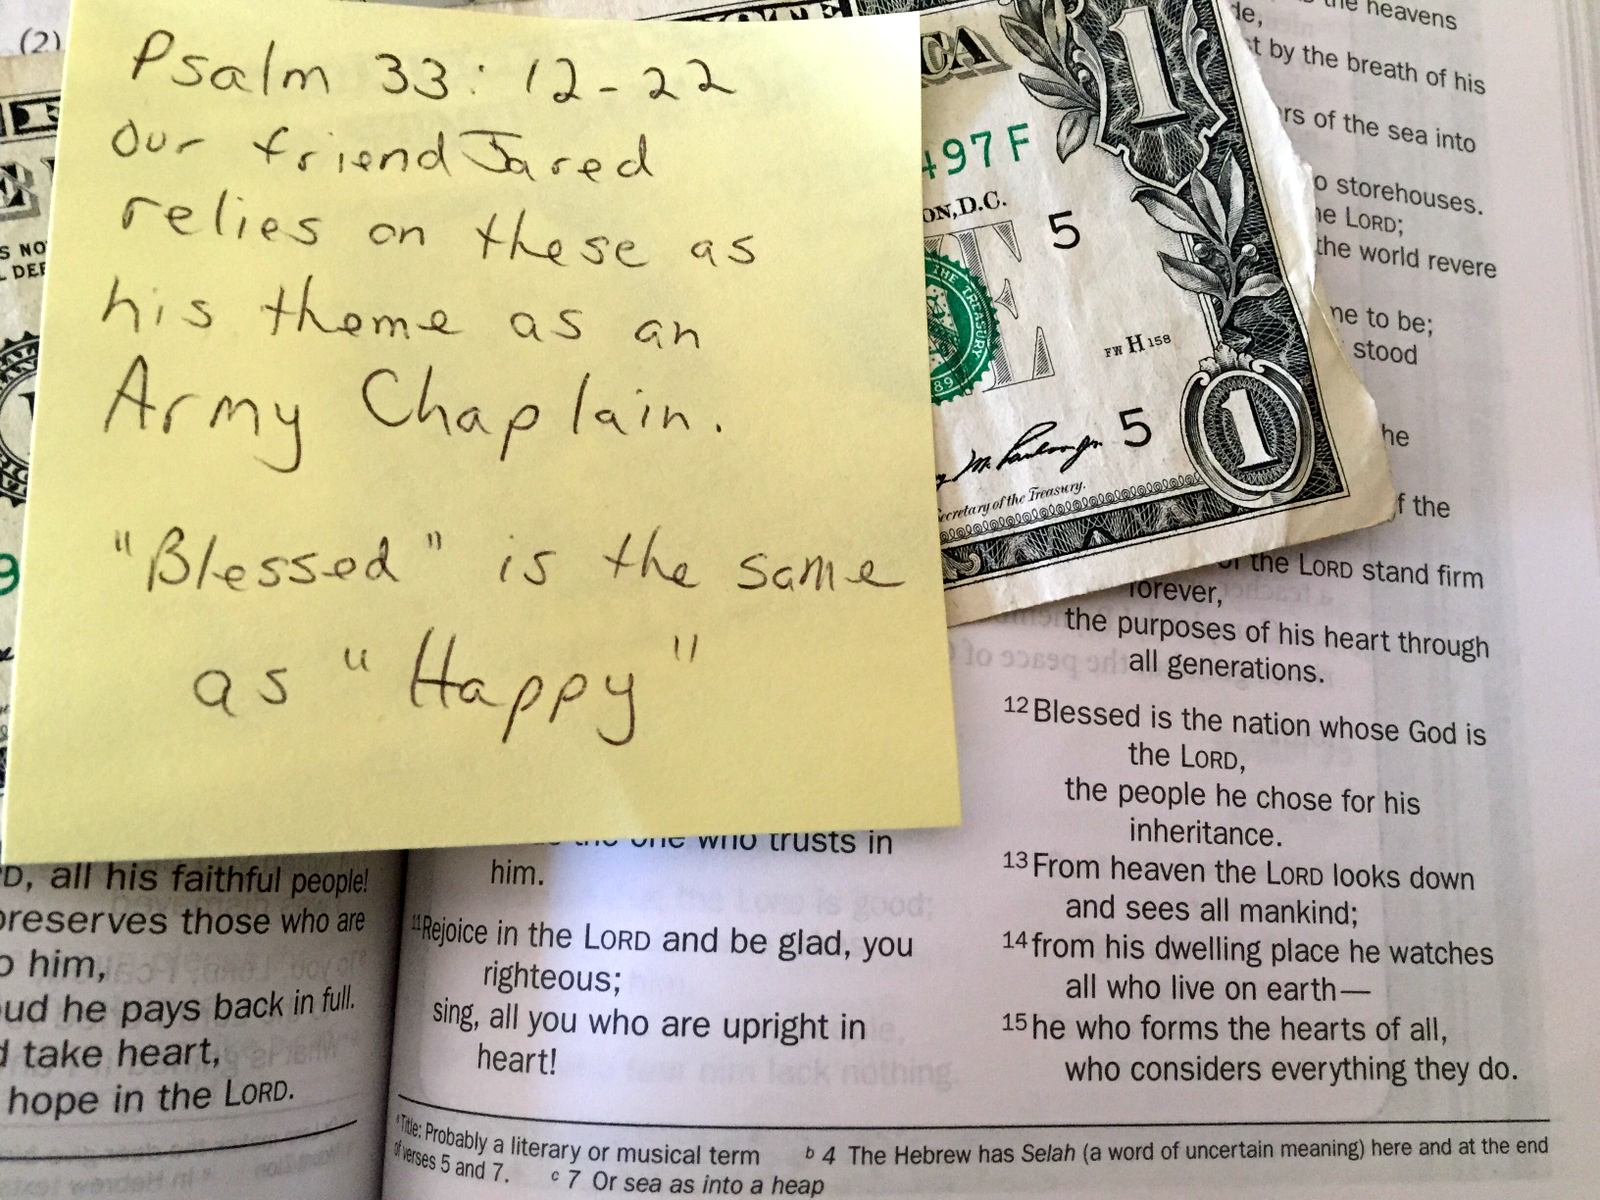 (2)
Psalm 33: 12-22
Our friend Jared
relies on these as
his theme as an
Army Chaplain.
"Blessed" is the same
as "Happy"
CA
1
497F
ON, D.C.
5
THE TREASURY
FW H 158
5
Secretary of the Treasury.
1
S NO
L DE
9
D, all his faithful people!
preserves those who are
o him,
oud he pays back in full.
d take heart,
hope in the LORD.
the one who trusts in
him.
11Rejoice in the LORD and be glad, you
righteous;
sing, all you who are upright in
heart!
the heavens
de,
t by the breath of his
ers of the sea into
o storehouses.
he LORD;
the world revere
me to be;
stood
he
f the
of the LORD stand firm
forever,
the purposes of his heart through
all generations.
12Blessed is the nation whose God is
the LORD,
the people he chose for his
inheritance.
13From heaven the LORD looks down
and sees all mankind;
14from his dwelling place he watches
all who live on earth—
15he who forms the hearts of all,
who considers everything they do.
a Title: Probably a literary or musical term
of verses 5 and 7.
b 4 The Hebrew has Selah (a word of uncertain meaning) here and at the end
c 7 Or sea as into a heap